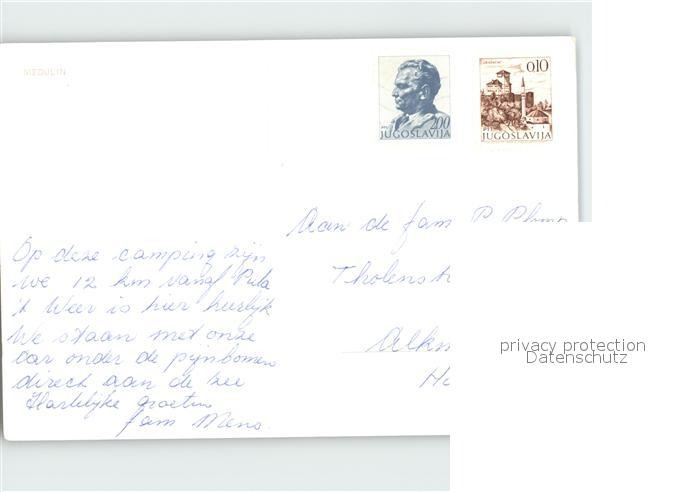 MEDULIN
200
JUGOSLAVIJA
0,10
JUGOSLAVIJA
Aan de fam P
Op deze camping zijn
we 12 km vanaf Pula
't Weer is hier heerlijk
We staan met onze
car onder de pijnbomen
direct aan de zee
Hartelijke groeten
fam Mens.
Tholenst
Alkm
Ho
privacy protection
Datenschutz